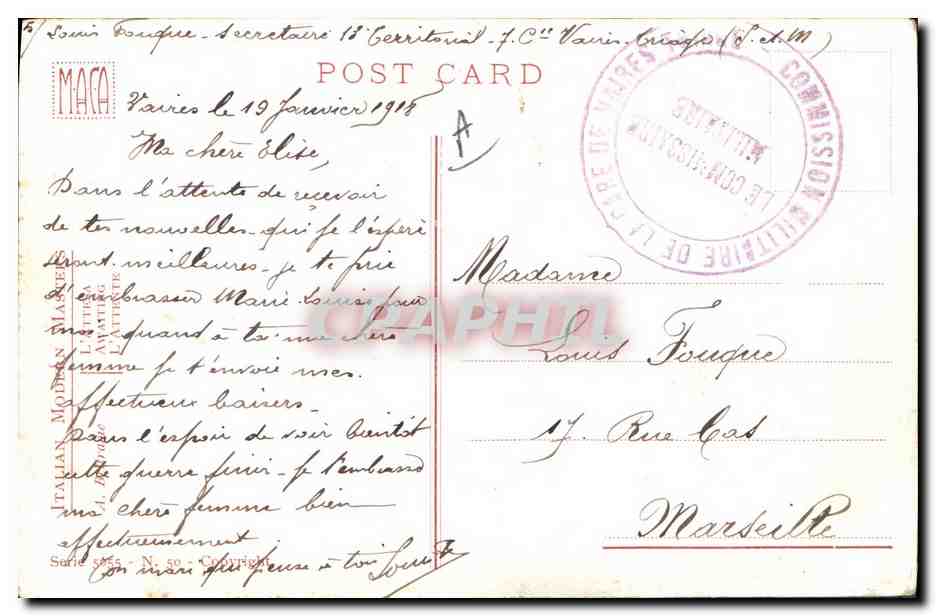 Louis Fouque - Secretaire 13e Territorial - 7. Cie Vaires (S. et M)
POST CARD
M.A.C.A
Vaires le 19 Janvier 1918
Ma chère Elise,
Dans l'attente de recevoir
de tes nouvelles - qui je l'espère
seront meilleures - je te prie
d'embrasser Marie Louise pour
moi - quand à toi ma chère
femme je t'envoie mes
affectueux baisers -
Dans l'espoir de voir bientôt
cette guerre finir - je t'embrasse
ma chère femme bien
affectueusement
ton mari qui pense à toi Louis
Serie 5055 - N. 50 - Copyright
ITALIAN MODERN MASTERS
L'ATTESA
AWAITING
L'ATTENTE
COMMISSION MILITAIRE DE LA GARE DE VAIRES
LE COMMISSAIRE
MILITAIRE
A
Madame
Louis Fouque
17. Rue Cas
Marseille
CPAPHIL